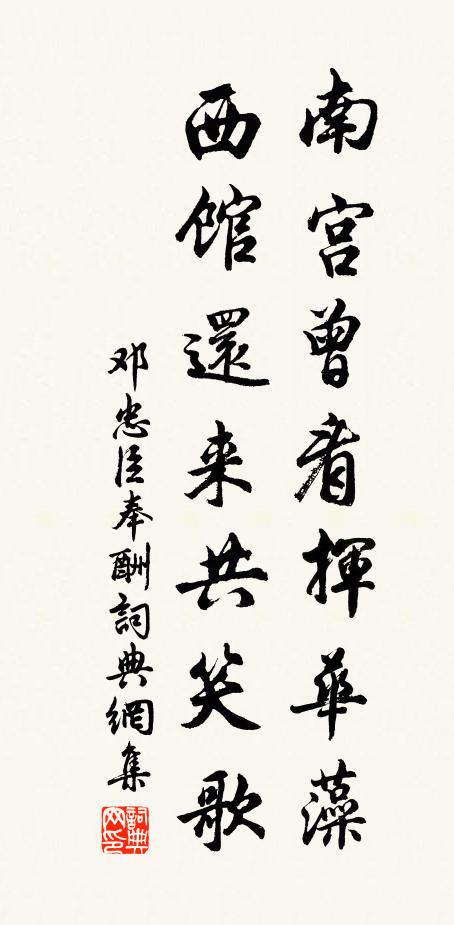 南宫曾看揮華藻
西馆還来共笑歌
邓忠臣奉酬詞典網集
詞典网印